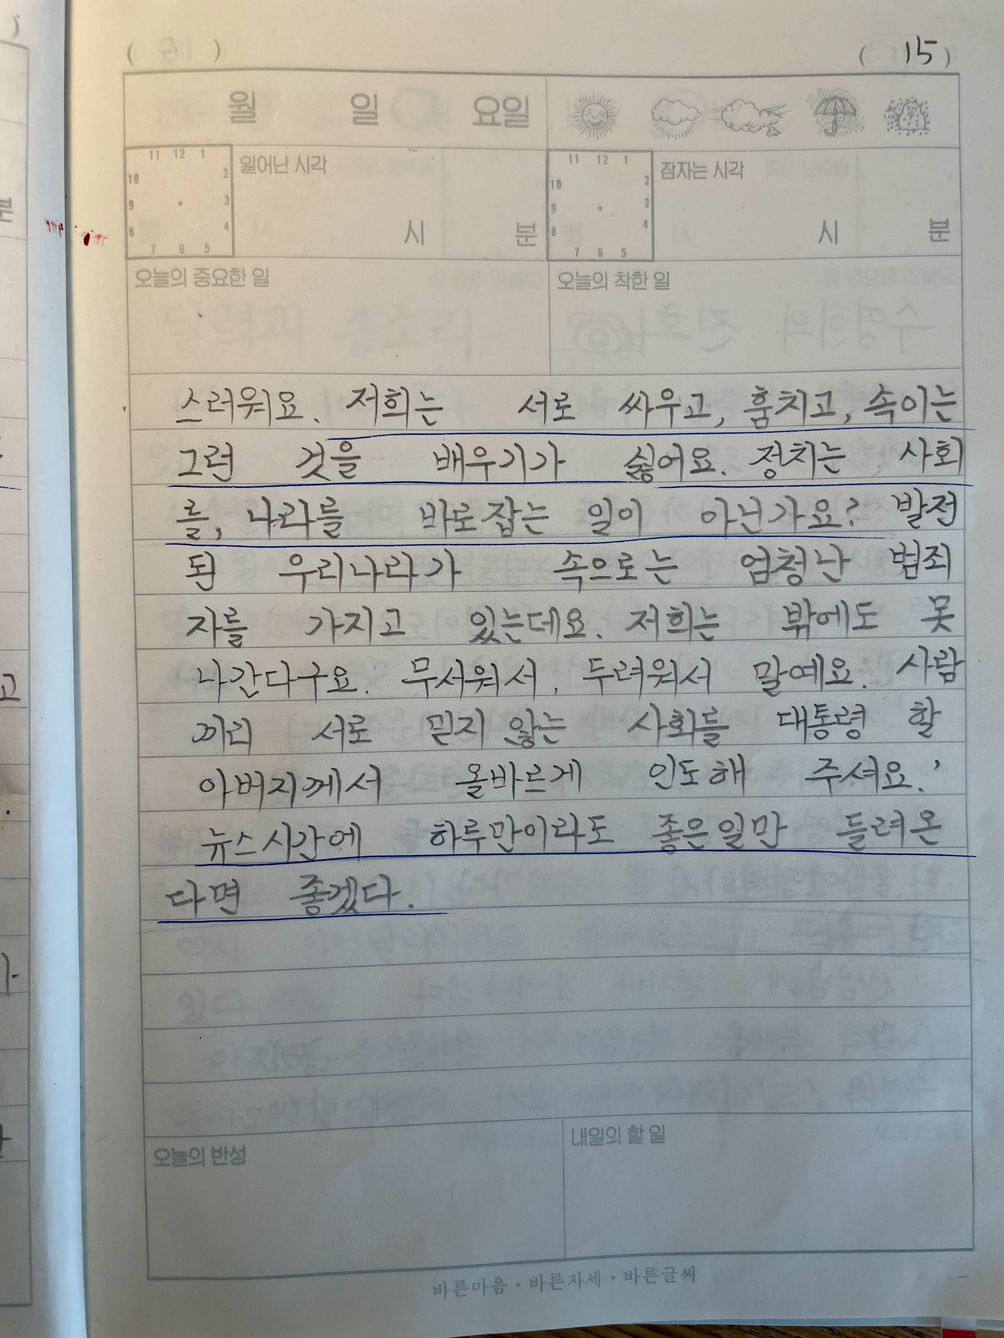 ( 15 )
월 일 요일
11 12 1
10 2
9 3
8 4
7 6 5
일어난 시각
시 분
11 12 1
10 2
9 3
8 4
7 6 5
잠자는 시각
시 분
오늘의 중요한 일
오늘의 착한 일
스러워요. 저희는 서로 싸우고, 훔치고, 속이는
그런 것을 배우기가 싫어요. 정치는 사회
를, 나라를 바로잡는 일이 아닌가요? 발전
된 우리나라가 속으로는 엄청난 범죄
자를 가지고 있는데요. 저희는 밖에도 못
나간다구요. 무서워서, 두려워서 말예요. 사람
끼리 서로 믿지 않는 사회를 대통령 할
아버지께서 올바르게 인도해 주셔요.'
뉴스시간에 하루만이라도 좋은일만 들려온
다면 좋겠다.
오늘의 반성
내일의 할 일
바른마음 · 바른자세 · 바른글씨